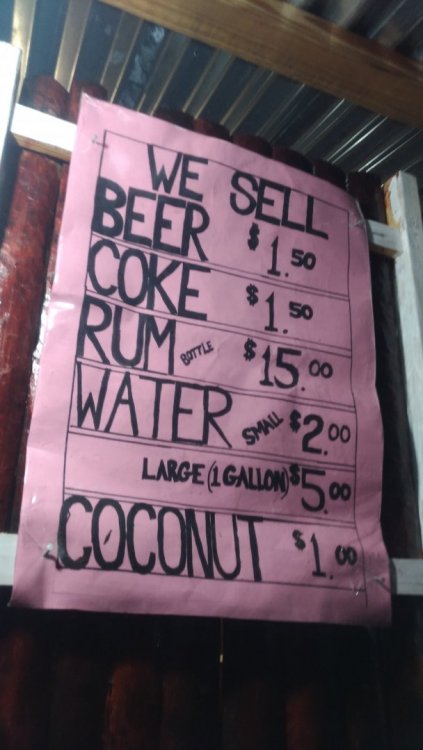 WE SELL
BEER $1.50
COKE $1.50
RUM BOTTLE $15.00
WATER SMALL $2.00
LARGE (1 GALLON) $5.00
COCONUT $1.00